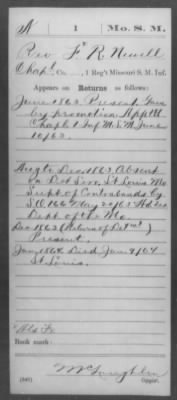 N 1 Mo. S. M.
Rev F. R. Newell
Chapl Co. , 1 Reg't Missouri S. M. Inf.
Appears on Returns as follows:
June 1863 Present Gain
by promotion Apptd
Chapl 1 Inf M.S.M. June
10/63.
Aug to Dec 1863 Absent
on Det Serv. St Louis Mo
Supt of Contrabands by
S.O. 166 May 20/63 Hd Qrs
Dept of the Mo.
Dec 1863 (Return of Det)
Present.
Jan 1864 Died Jan 9/64
St Louis.
Book mark:
McLaughlin
Copyist.